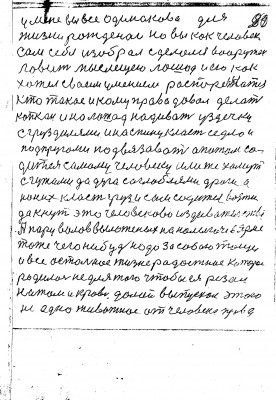 у меня вы все одинакова для 80
жизни рожденаи но вы как человек
сам себя изобрал сделолся вооружон
ловит мыслящею лошод и ею как
хотел своем умением распорежатся
кто такое и кому права довол делат
капкан и на лошад надиват уздечку
с груздилеми и наспину класт седло и
подпругоми подвязават а патом са-
дится самому человеку или те хамут
с гужами да дуга соглоблеми дроги а
на них класт груз и сам садится возти
да кнут это человеково издевателство
Я пару валов выложеных на
тоже чего нибуд надо за собою тащит
и все осталное жизнерадостное которое
родилос не для того чтобы ея резом
нажом и крове долой выпускал этого
не адно животное от человека права